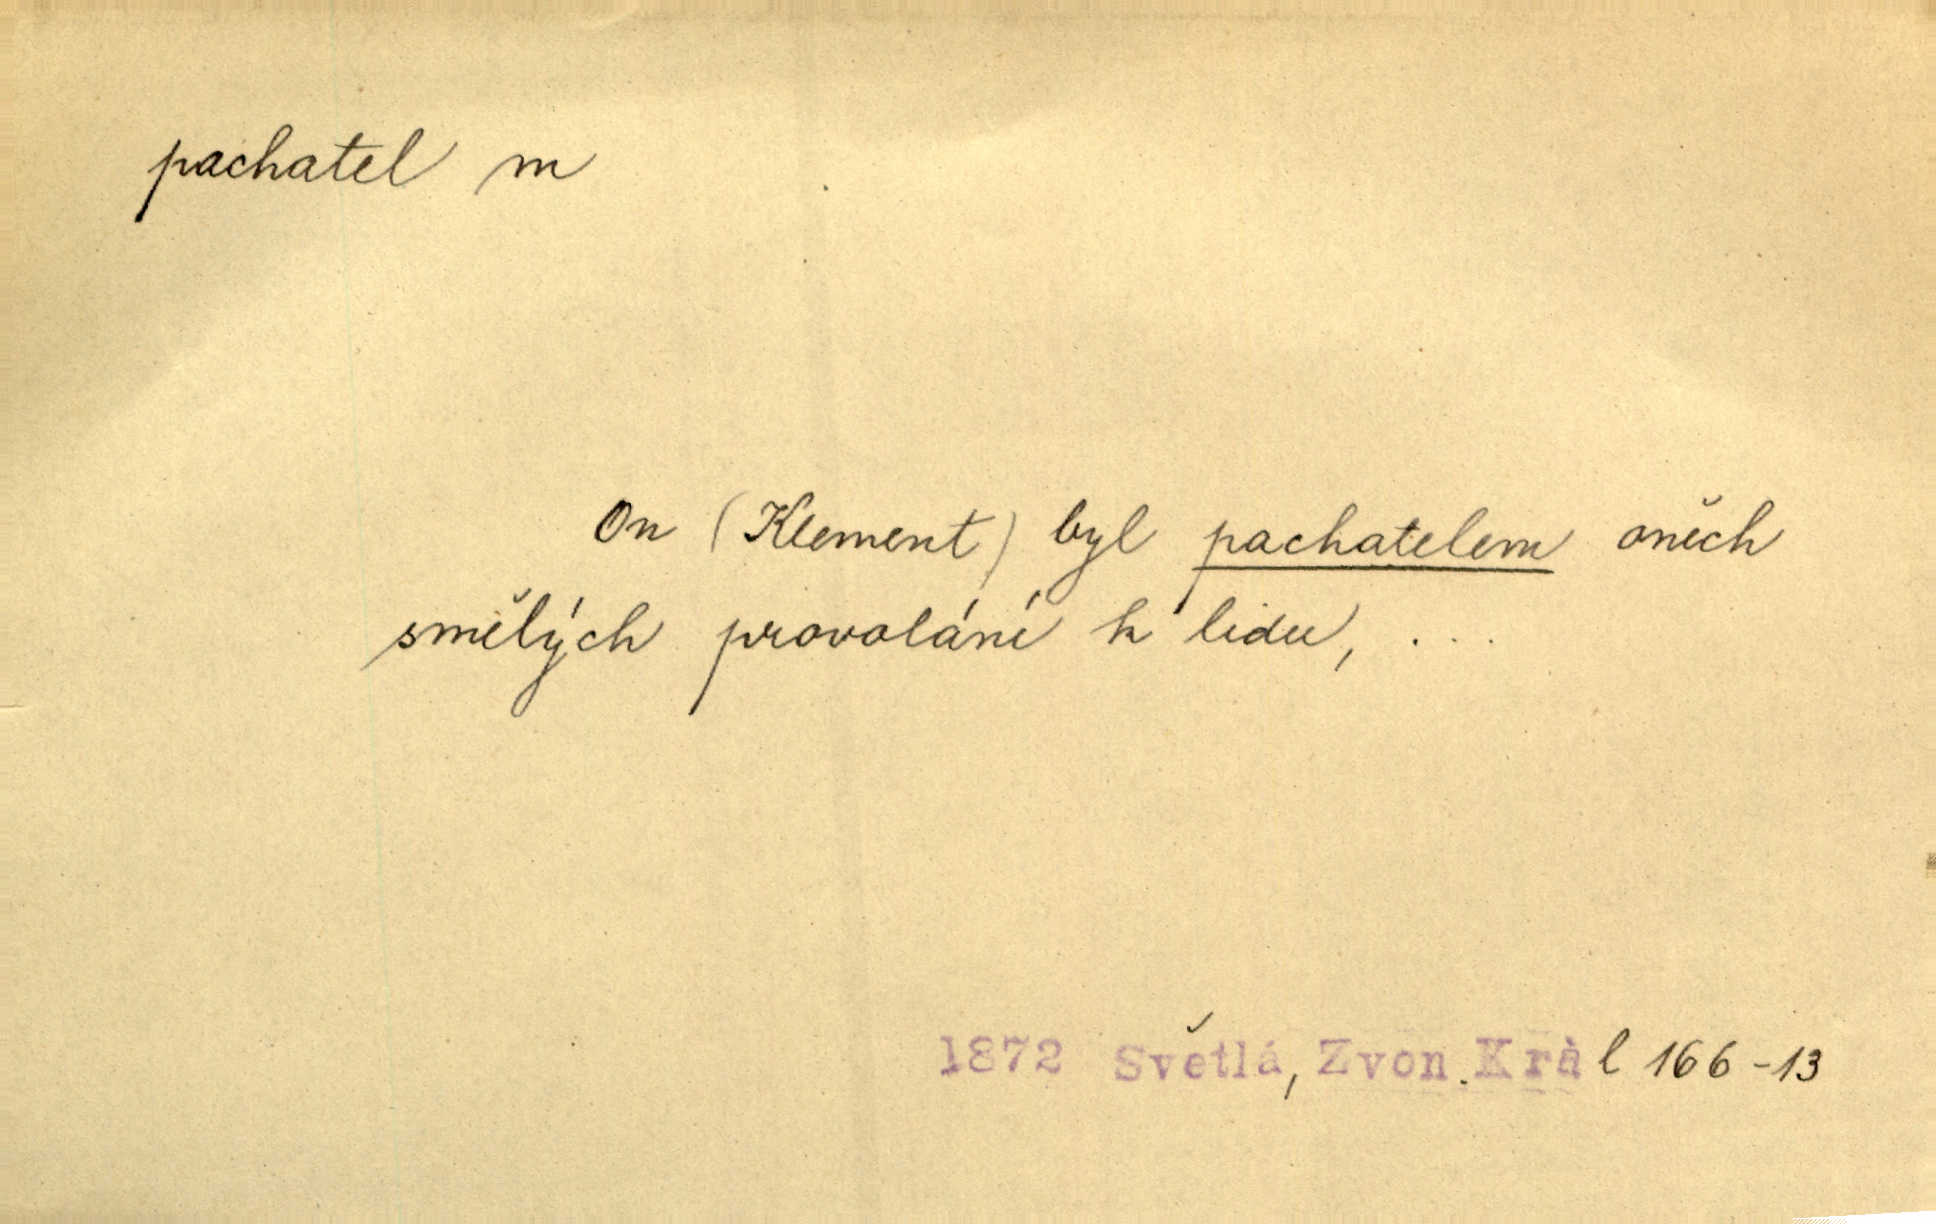 pachatel m
On (Klement) byl pachatelem oněch
smělých provolání k lidu, ...
1872 Světlá, Zvon. Král 166-13